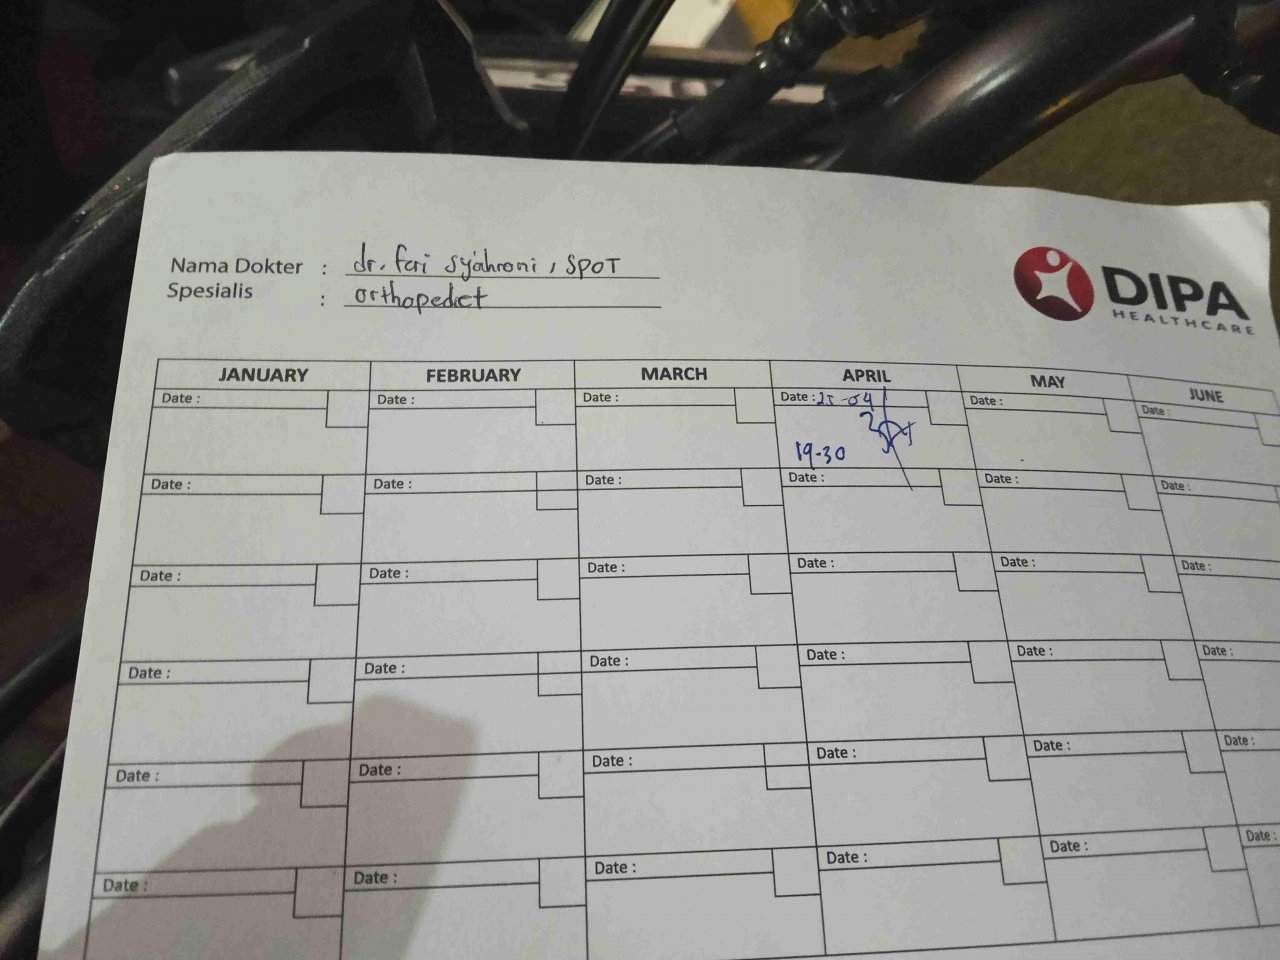 Nama Dokter : dr. Feri Syahroni, SPOT
Spesialis : Orthopedict
DIPA
HEALTHCARE
JANUARY FEBRUARY MARCH APRIL MAY JUNE
Date : Date : Date : Date : 25-04 Date : Date :
19-30
Date : Date : Date : Date : Date : Date :
Date : Date : Date : Date : Date : Date :
Date : Date : Date : Date : Date : Date :
Date : Date : Date : Date : Date : Date :
Date : Date : Date : Date : Date : Date :